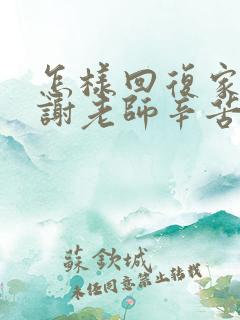 怎樣回復家
謝老師辛苦
蘇欽城
未經同意禁止轉載